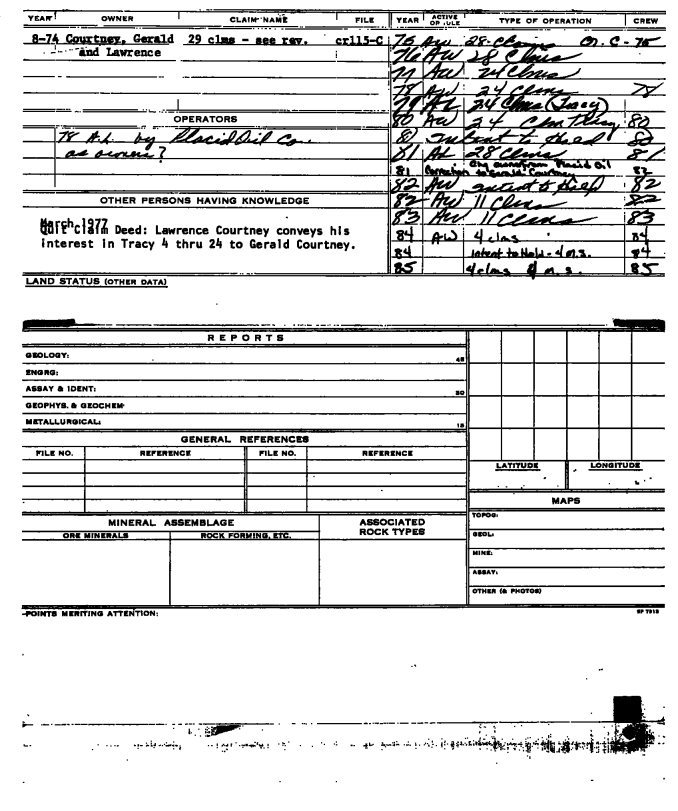 YEAR OWNER CLAIM NAME FILE
8-74 Courtney, Gerald 29 clms - see rev. cr115-C
and Lawrence
OPERATORS
78 A.L. by Placid Oil Co.
as owners?
OTHER PERSONS HAVING KNOWLEDGE
March 1977
Quit Claim Deed: Lawrence Courtney conveys his
interest in Tracy 4 thru 24 to Gerald Courtney.
LAND STATUS (OTHER DATA)
YEAR ACTIVE TYPE OF OPERATION CREW
75 AW 28 Clms - 75
76 AW 28 Clms
77 AW 24 Clms
78 AW 24 Clms 78
79 AL 24 Clms (Tracy)
80 AW 24 Clm Tracy 80
80 Intent to Hold 80
81 AL 28 Clms 81
81 from Placid Oil
Correction to Gerald Courtney 82
82 AW Intent to Hold 82
82 AW 11 Clms 82
83 AW 11 Clms 83
84 AW 4 clms 84
84 Intent to Hold - 4 M.S. 84
85 4 clms 4 M.S. 85
REPORTS
GEOLOGY: 45
ENGRG:
ASSAY & IDENT: 30
GEOPHYS. & GEOCHEM
METALLURGICAL: 15
GENERAL REFERENCES
FILE NO. REFERENCE FILE NO. REFERENCE
LATITUDE LONGITUDE
MINERAL ASSEMBLAGE
ORE MINERALS ROCK FORMING, ETC.
ASSOCIATED
ROCK TYPES
MAPS
TOPOG:
GEOL:
MINE:
ASSAY:
OTHER (& PHOTOS)
POINTS MERITING ATTENTION:
SF 7915